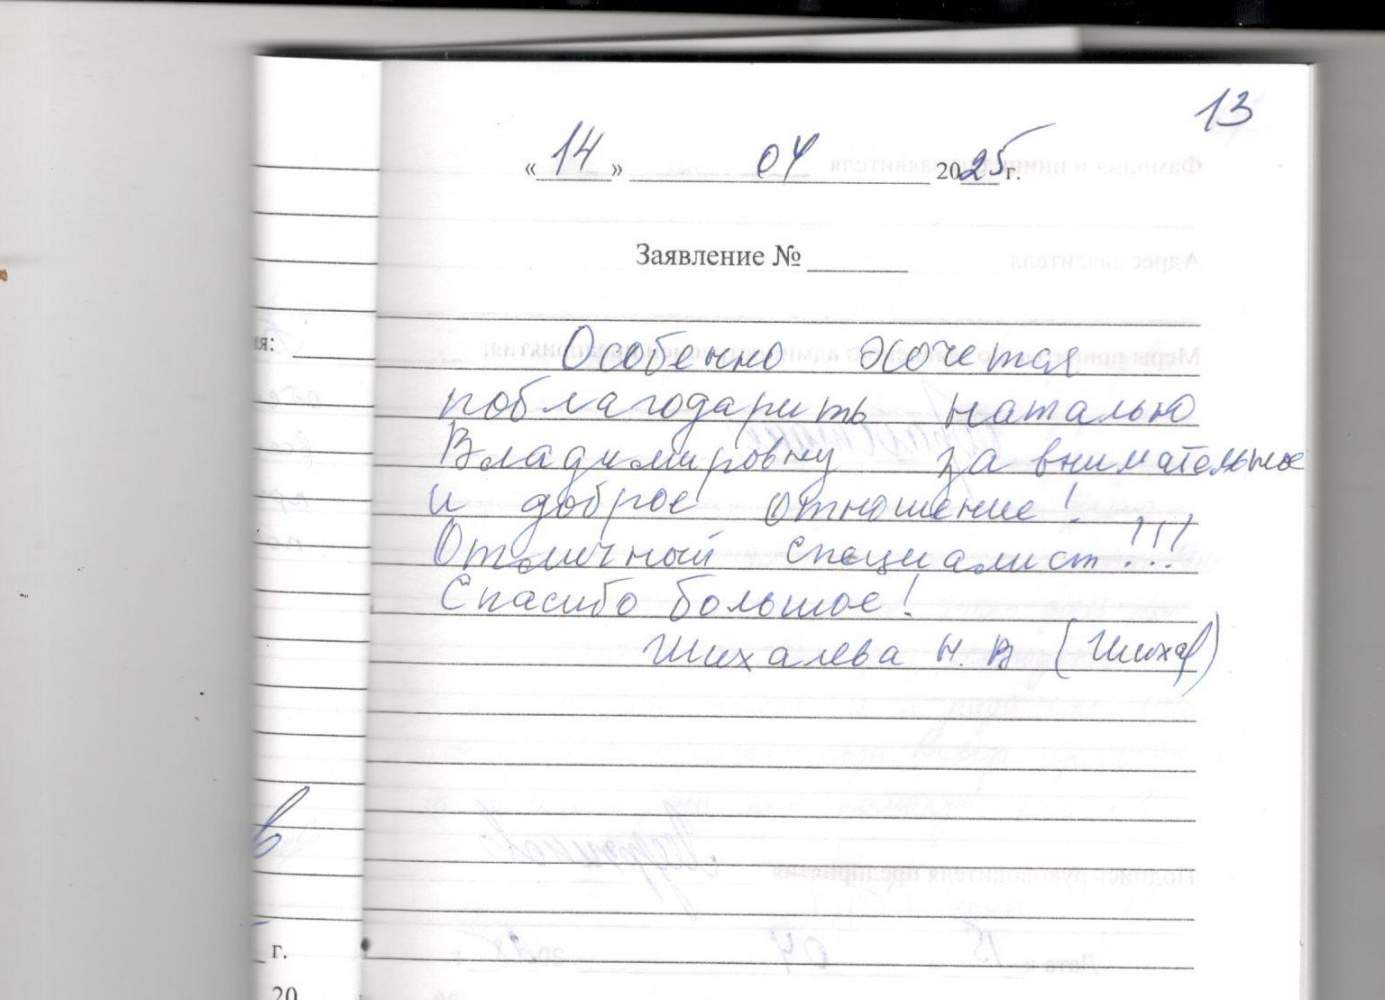 13
«14» 04 2025г.
Заявление №
ия:
Особенно хочется
поблагодарить Наталью
Владимировну за внимательное
и доброе отношение!
Отличный специалист!!!
Спасибо большое!
Шихалева Н.В (Шихал)
г.
20